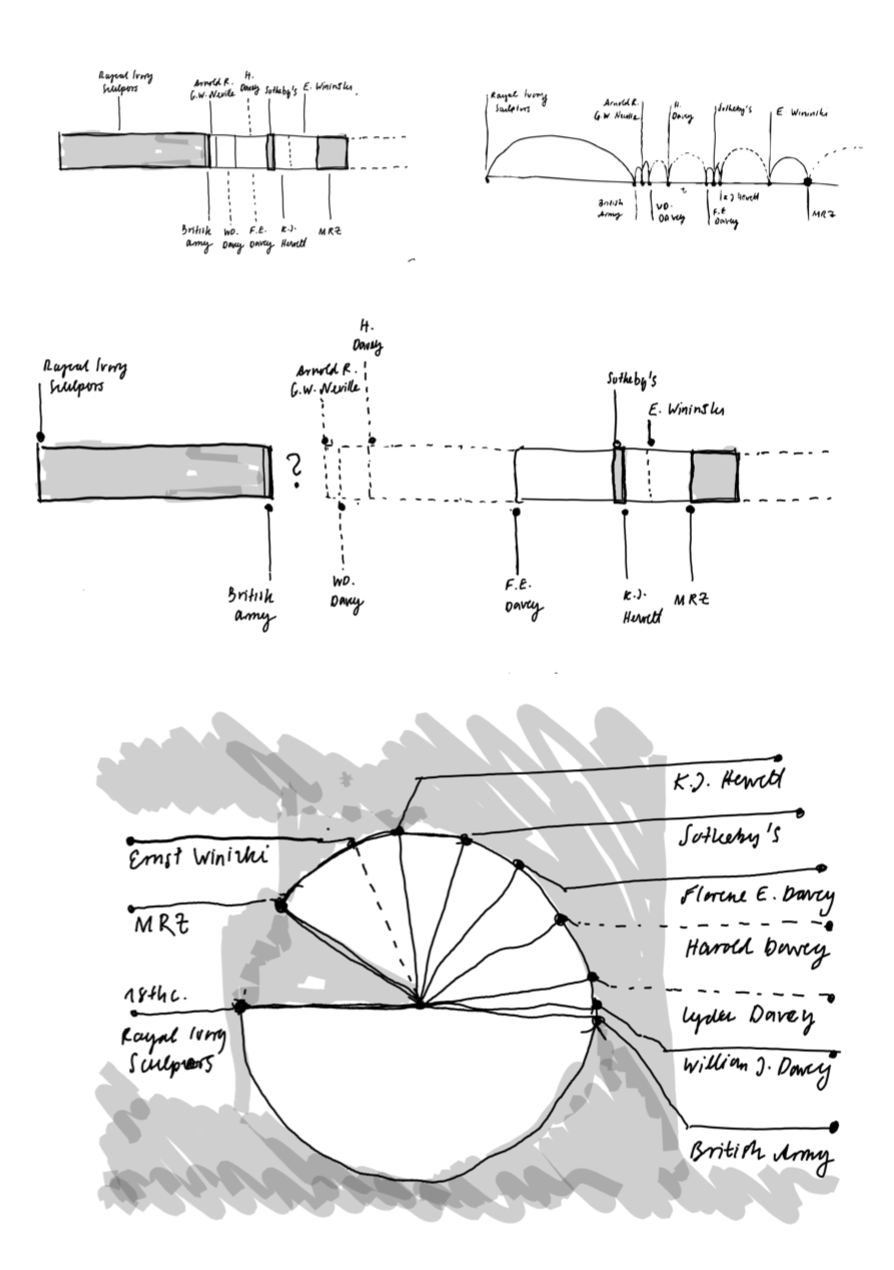 Rayal Ivory
Sculpors
Arnold R.
G.W. Neville
H.
Davey
Sotheby's
E. Wininski
British
army
WD.
Davey
F.E.
Davey
K.J.
Hewett
MRZ
Rayal Ivory
Sculpors
Arnold R.
G.W. Neville
H.
Davey
Sotheby's
E. Wininski
British
Army
WD.
Davey
F.E
Davey
K.J Hewett
MRZ
Rayal Ivory
Sculpors
Arnold R.
G.W. Neville
H.
Davey
Sotheby's
E. Wininski
?
British
army
WD.
Davey
F.E.
Davey
K.J.
Hewett
MRZ
K.J. Hewett
Sotheby's
Ernst Winizki
Florene E. Davey
MRZ
Harold Davey
18th c.
Lyder Davey
Rayal Ivory
Sculpors
William J. Davey
British Army